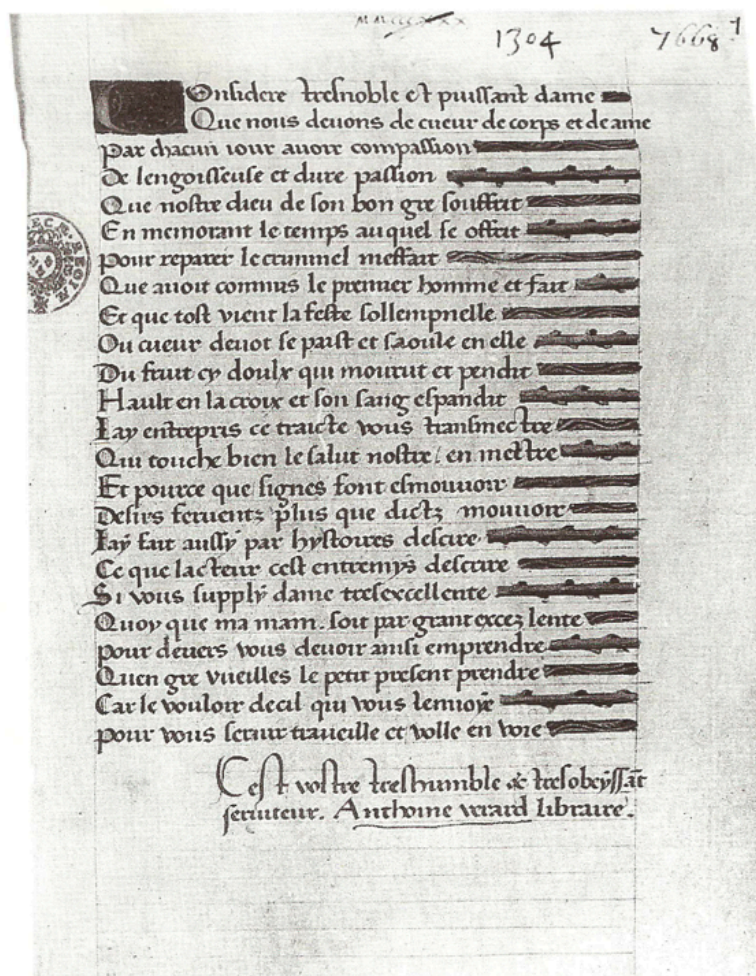 MMCCCXXX
1304 7668 7
Considere tresnoble et puissant dame
Que nous deuons de cueur de corps et de ame
Par chacun iour auoir compassion
De lengoisseuse et dure passion
Que nostre dieu de son bon gre souffrit
En memorant le temps auquel se offrit
Pour reparer le criminel meffait
Que auoit commis le premier homme et fait
Et que tost vient la feste sollempnelle
Ou cueur deuot se paist et saoule en elle
Du fruit cy doulx qui mourut et pendit
Hault en la croix et son sang espandit
Iay entrepris ce traicte vous transmectre
Qui touche bien le salut nostre / en mettre
Et pource que signes font esmouuoir
Desirs feruentz plus que dictz mouuoir
Iay fait aussy par hystoires descire
Ce que lacteur cest entremys descrire
Si vous supply dame tresexcellente
Quoy que ma main. soit par grant excez lente
pour deuers vous deuoir ainsi emprendre
Quen gre vueilles le petit present prendre
Car le vouloir decil qui vous lenuoye
pour vous seruir traueille et volle en voie
Cest vostre treshumble & tresobeyssāt
seruiteur. Anthoine verard libraire.